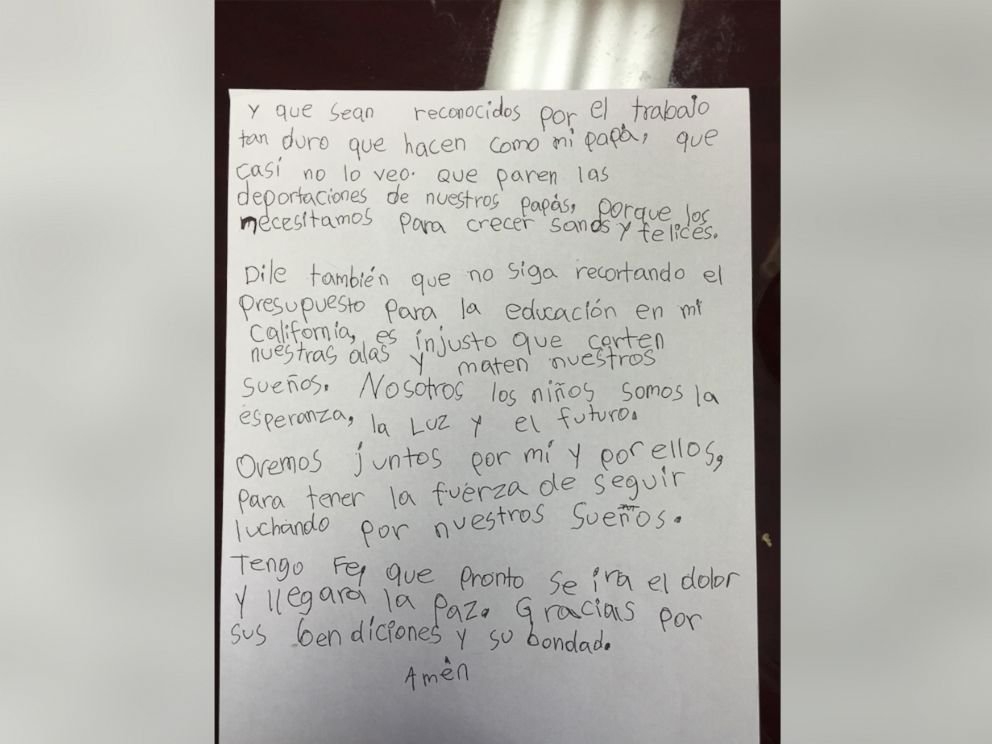 y que sean reconocidos por el trabajo
tan duro que hacen como mi papá, que
casí no lo veo. que paren las
deportaciones de nuestros papás, porque los
necesitamos para crecer sanos y felices.
Dile también que no siga recortando el
presupuesto para la educación en mi
California, es injusto que corten
nuestras alas y maten nuestros
sueños. Nosotros los niños somos la
esperanza, la Luz y el futuro.
Oremos juntos por mí y por ellos,
para tener la fuerza de seguir
luchando por nuestros sueños.
Tengo Fe, que pronto se ira el dolor
y llegará la paz. Gracias por
sus bendiciones y su bondad.
Amén